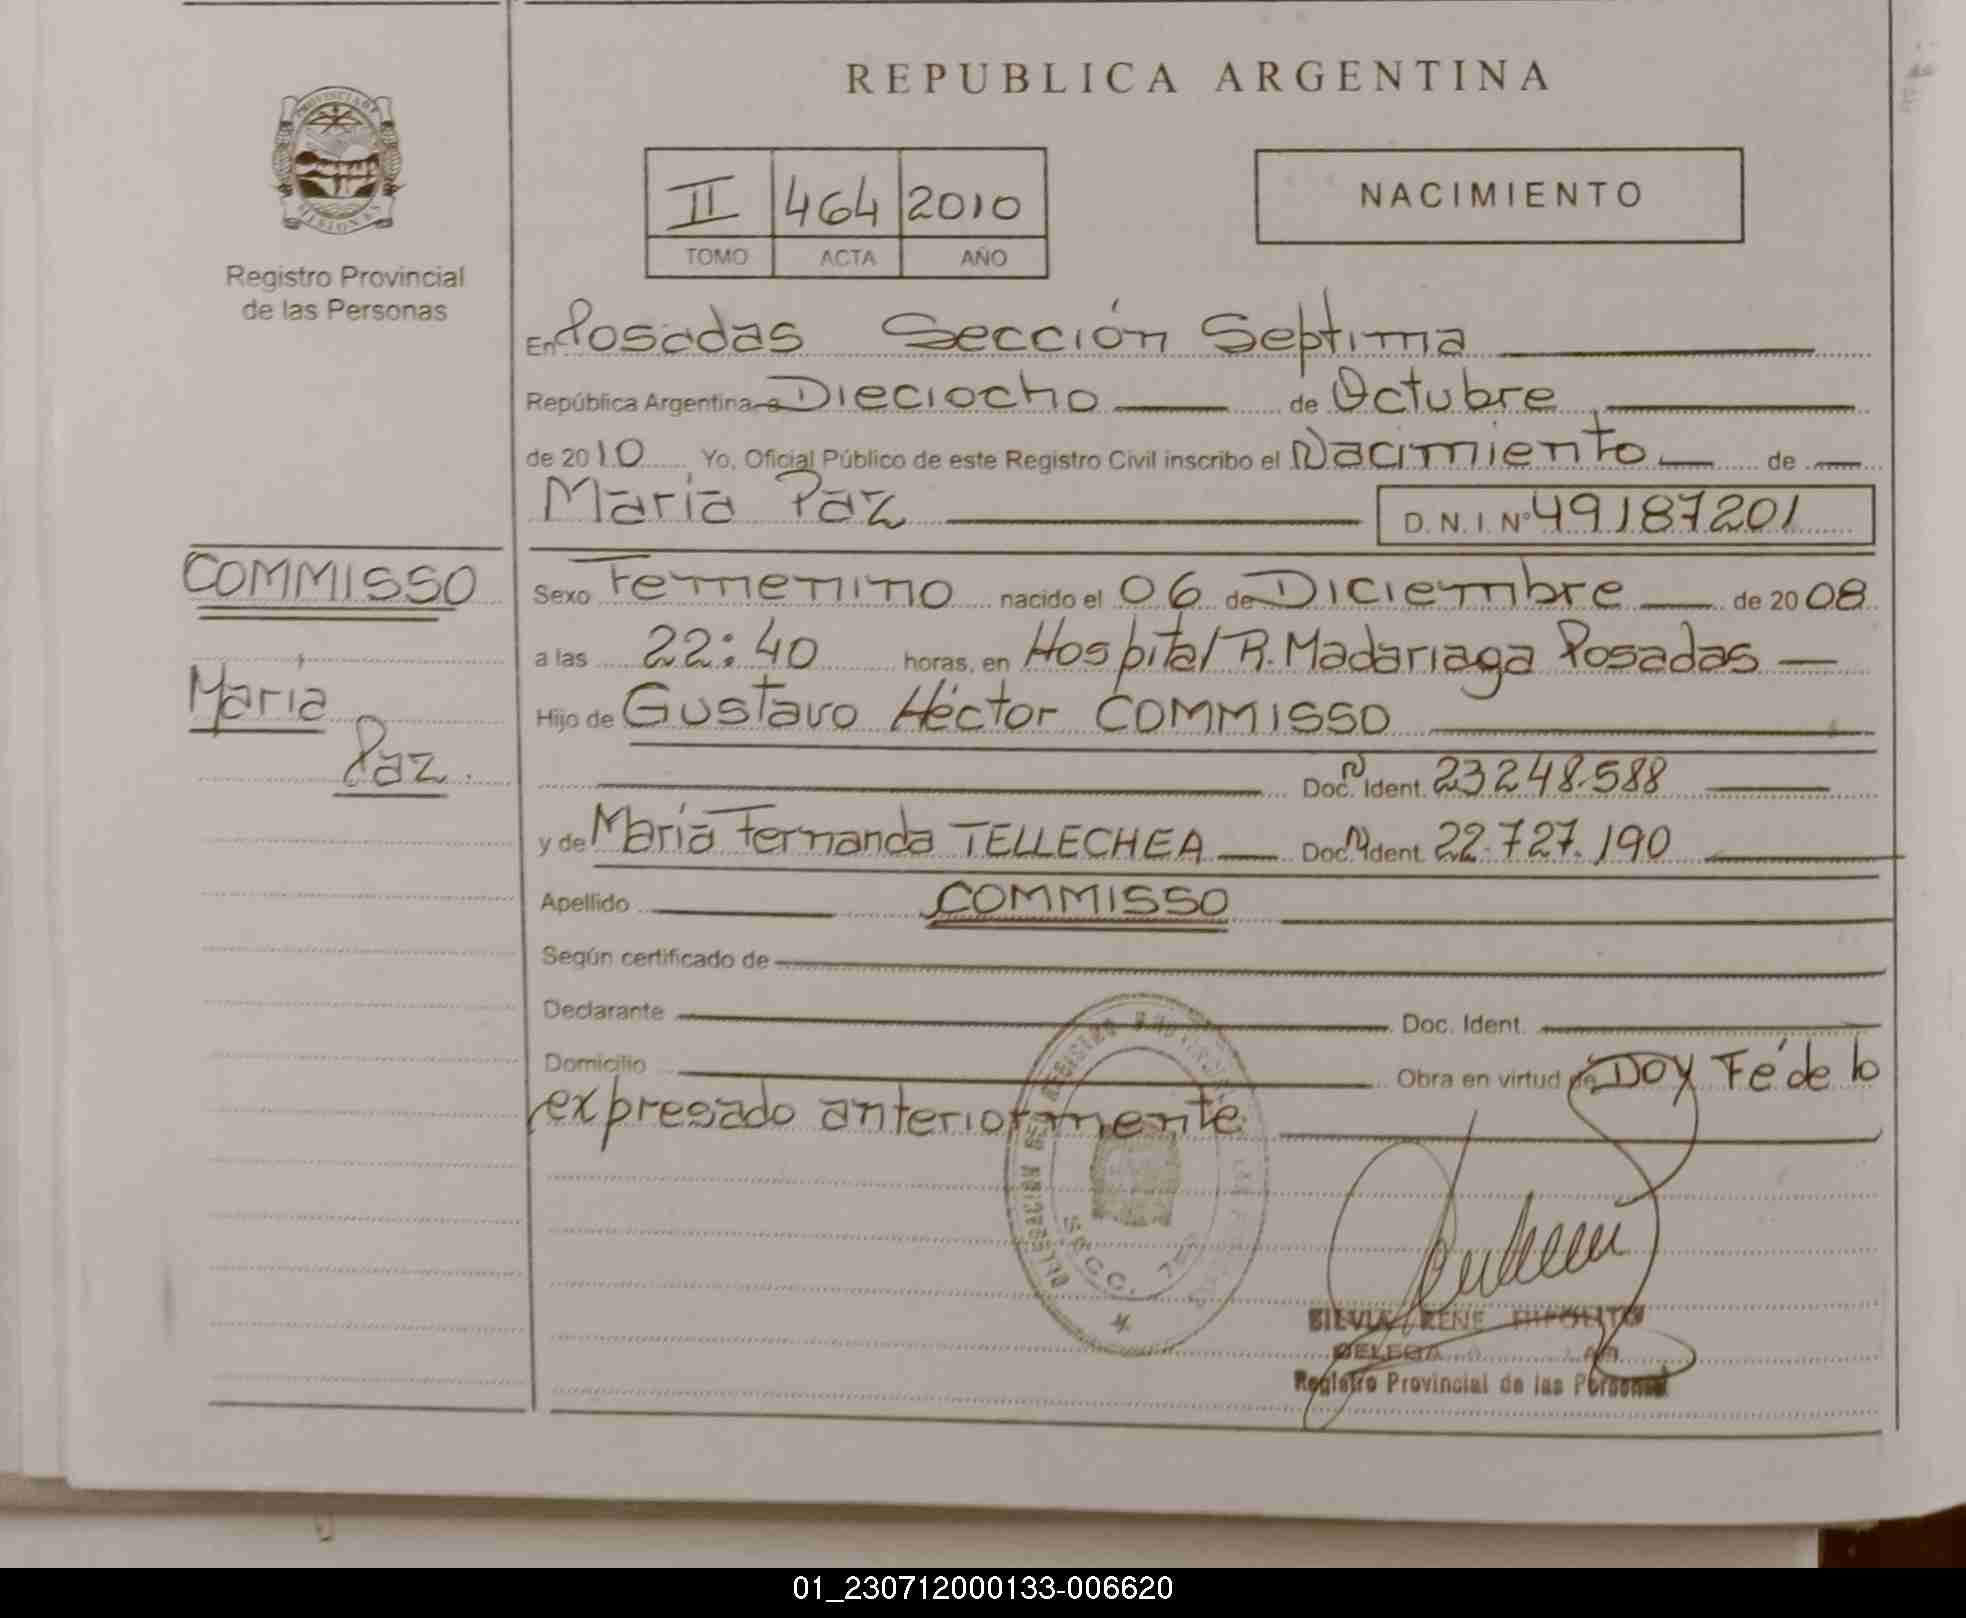 REPUBLICA ARGENTINA
PROVINCIA DE MISIONES
Registro Provincial
de las Personas
II 464 2010
TOMO ACTA AÑO
NACIMIENTO
En Posadas Sección Septima
República Argentina a Dieciocho de Octubre
de 2010 Yo, Oficial Público de este Registro Civil inscribo el Nacimiento de
María Paz D.N.I. Nº 49187201
COMMISSO
María
Paz.
Sexo Femenino nacido el 06 de Diciembre de 2008
a las 22:40 horas, en Hospital R. Madariaga Posadas
Hijo de Gustavo Héctor COMMISSO
Doc. Ident. 23248.588
y de María Fernanda TELLECHEA Doc. Ident. 22.727.190
Apellido COMMISSO
Según certificado de
Declarante Doc. Ident.
Domicilio Obra en virtud de Doy Fé de lo
expresado anteriormente
REGISTRO
SECC.
SILVIA IRENE HIPOLITO
Registro Provincial de las Personas
01_230712000133-006620